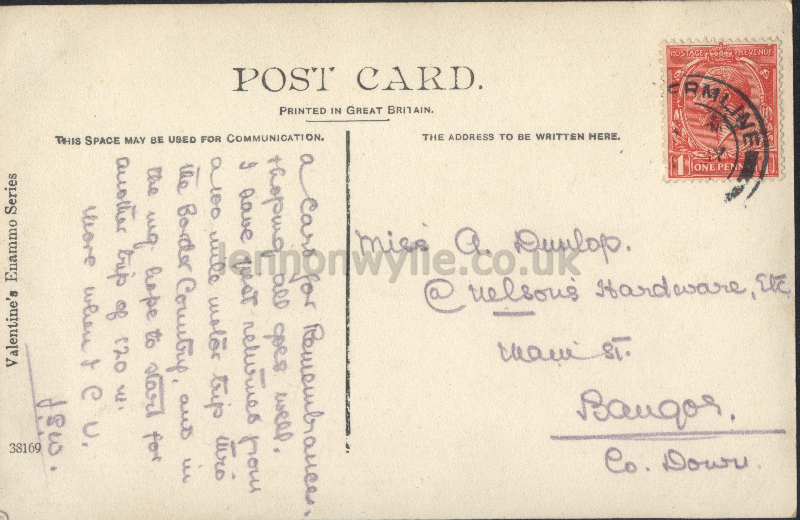 POST CARD.
PRINTED IN GREAT BRITAIN.
THIS SPACE MAY BE USED FOR COMMUNICATION.
THE ADDRESS TO BE WRITTEN HERE.
POSTAGE REVENUE
1 ONE PENNY 1
RMLINE
a card for Remembrance.
& hoping all goes well.
I have just returned from
a 100 mile motor trip thro
the Border Country, and in
the mg. hope to start for
another trip of 120 m.
More when I C U.
J.S.W.
Miss A. Dunlop.
@ Nelsons Hardware, Etc
Main St.
Bangor.
Co. Down.
Valentine's Enammo Series
38169
lennonwylie.co.uk